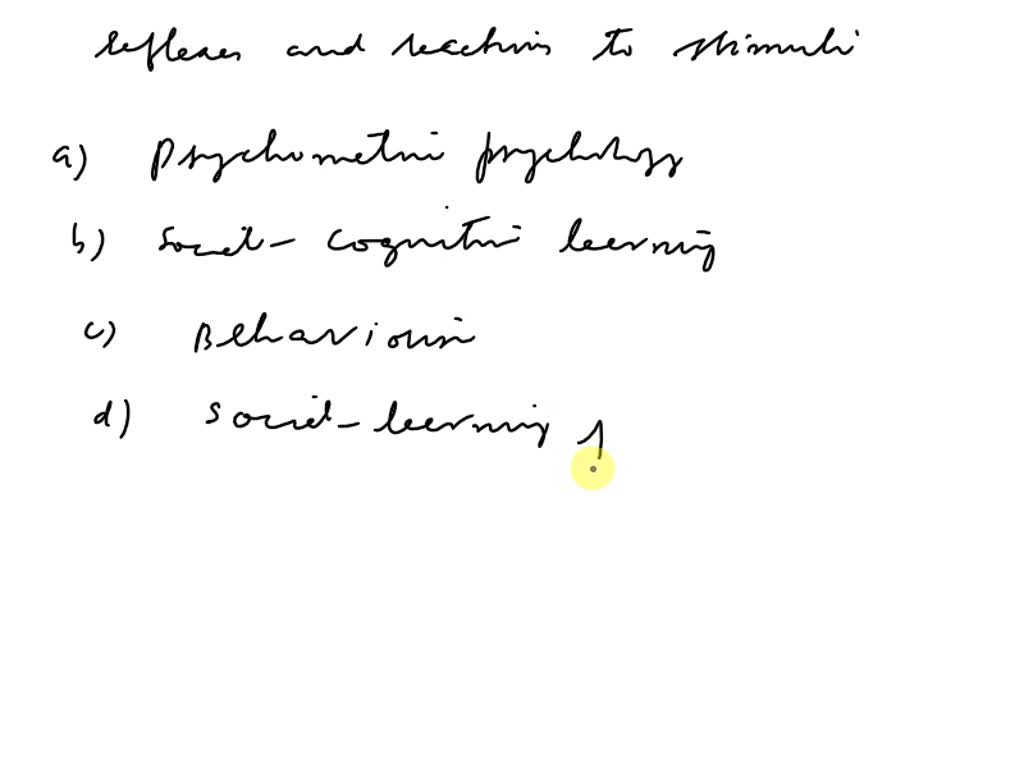 reflexes and reactions to stimuli
a) Psychometric psychology
b) Social-cognitive learning
c) Behaviourism
d) Social-learning